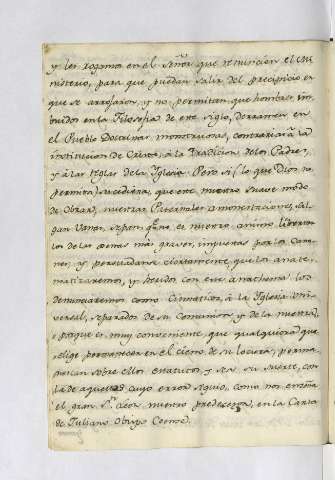 y les rogamos en el Señor que renuncien el Mi-
nisterio, para que puedan salir del precipicio en
que se arrojaron, y no permitan, que hombres im-
buidos en la Filosofia de este siglo, derramen en
el Pueblo Doctrinas monstruosas, contrarias a la
institucion de Christo, à la Tradicion de los Padres,
y à las reglas de la Iglesia. Pero si (lo que Dios no
permita) sucediera, que este nuestro suave modo
de Obrar, nuestras Paternales amonestaciones, sal-
gan vanas, sepan que no es nuestro animo libertar-
los de las penas mas graves, impuestas por los Cano-
nes, y persuadanse ciertamente, que los anate-
matizaremos, y heridos con este anathema los
denunciaremos como Cismaticos, à la Iglesia Uni-
versal, separados de su Comunion, y de la nuestra
porque es muy conveniente, que qualquiera que
elige permanecer en el cieno de su locura, perma-
nezcan sobre ellos estatutos y sea su suerte, con
la de aquellos cuyo error siguió, como nos enseña
el gran Sn. Leon nuestro predecesor, en la Carta
de Juliano Obispo Coense.